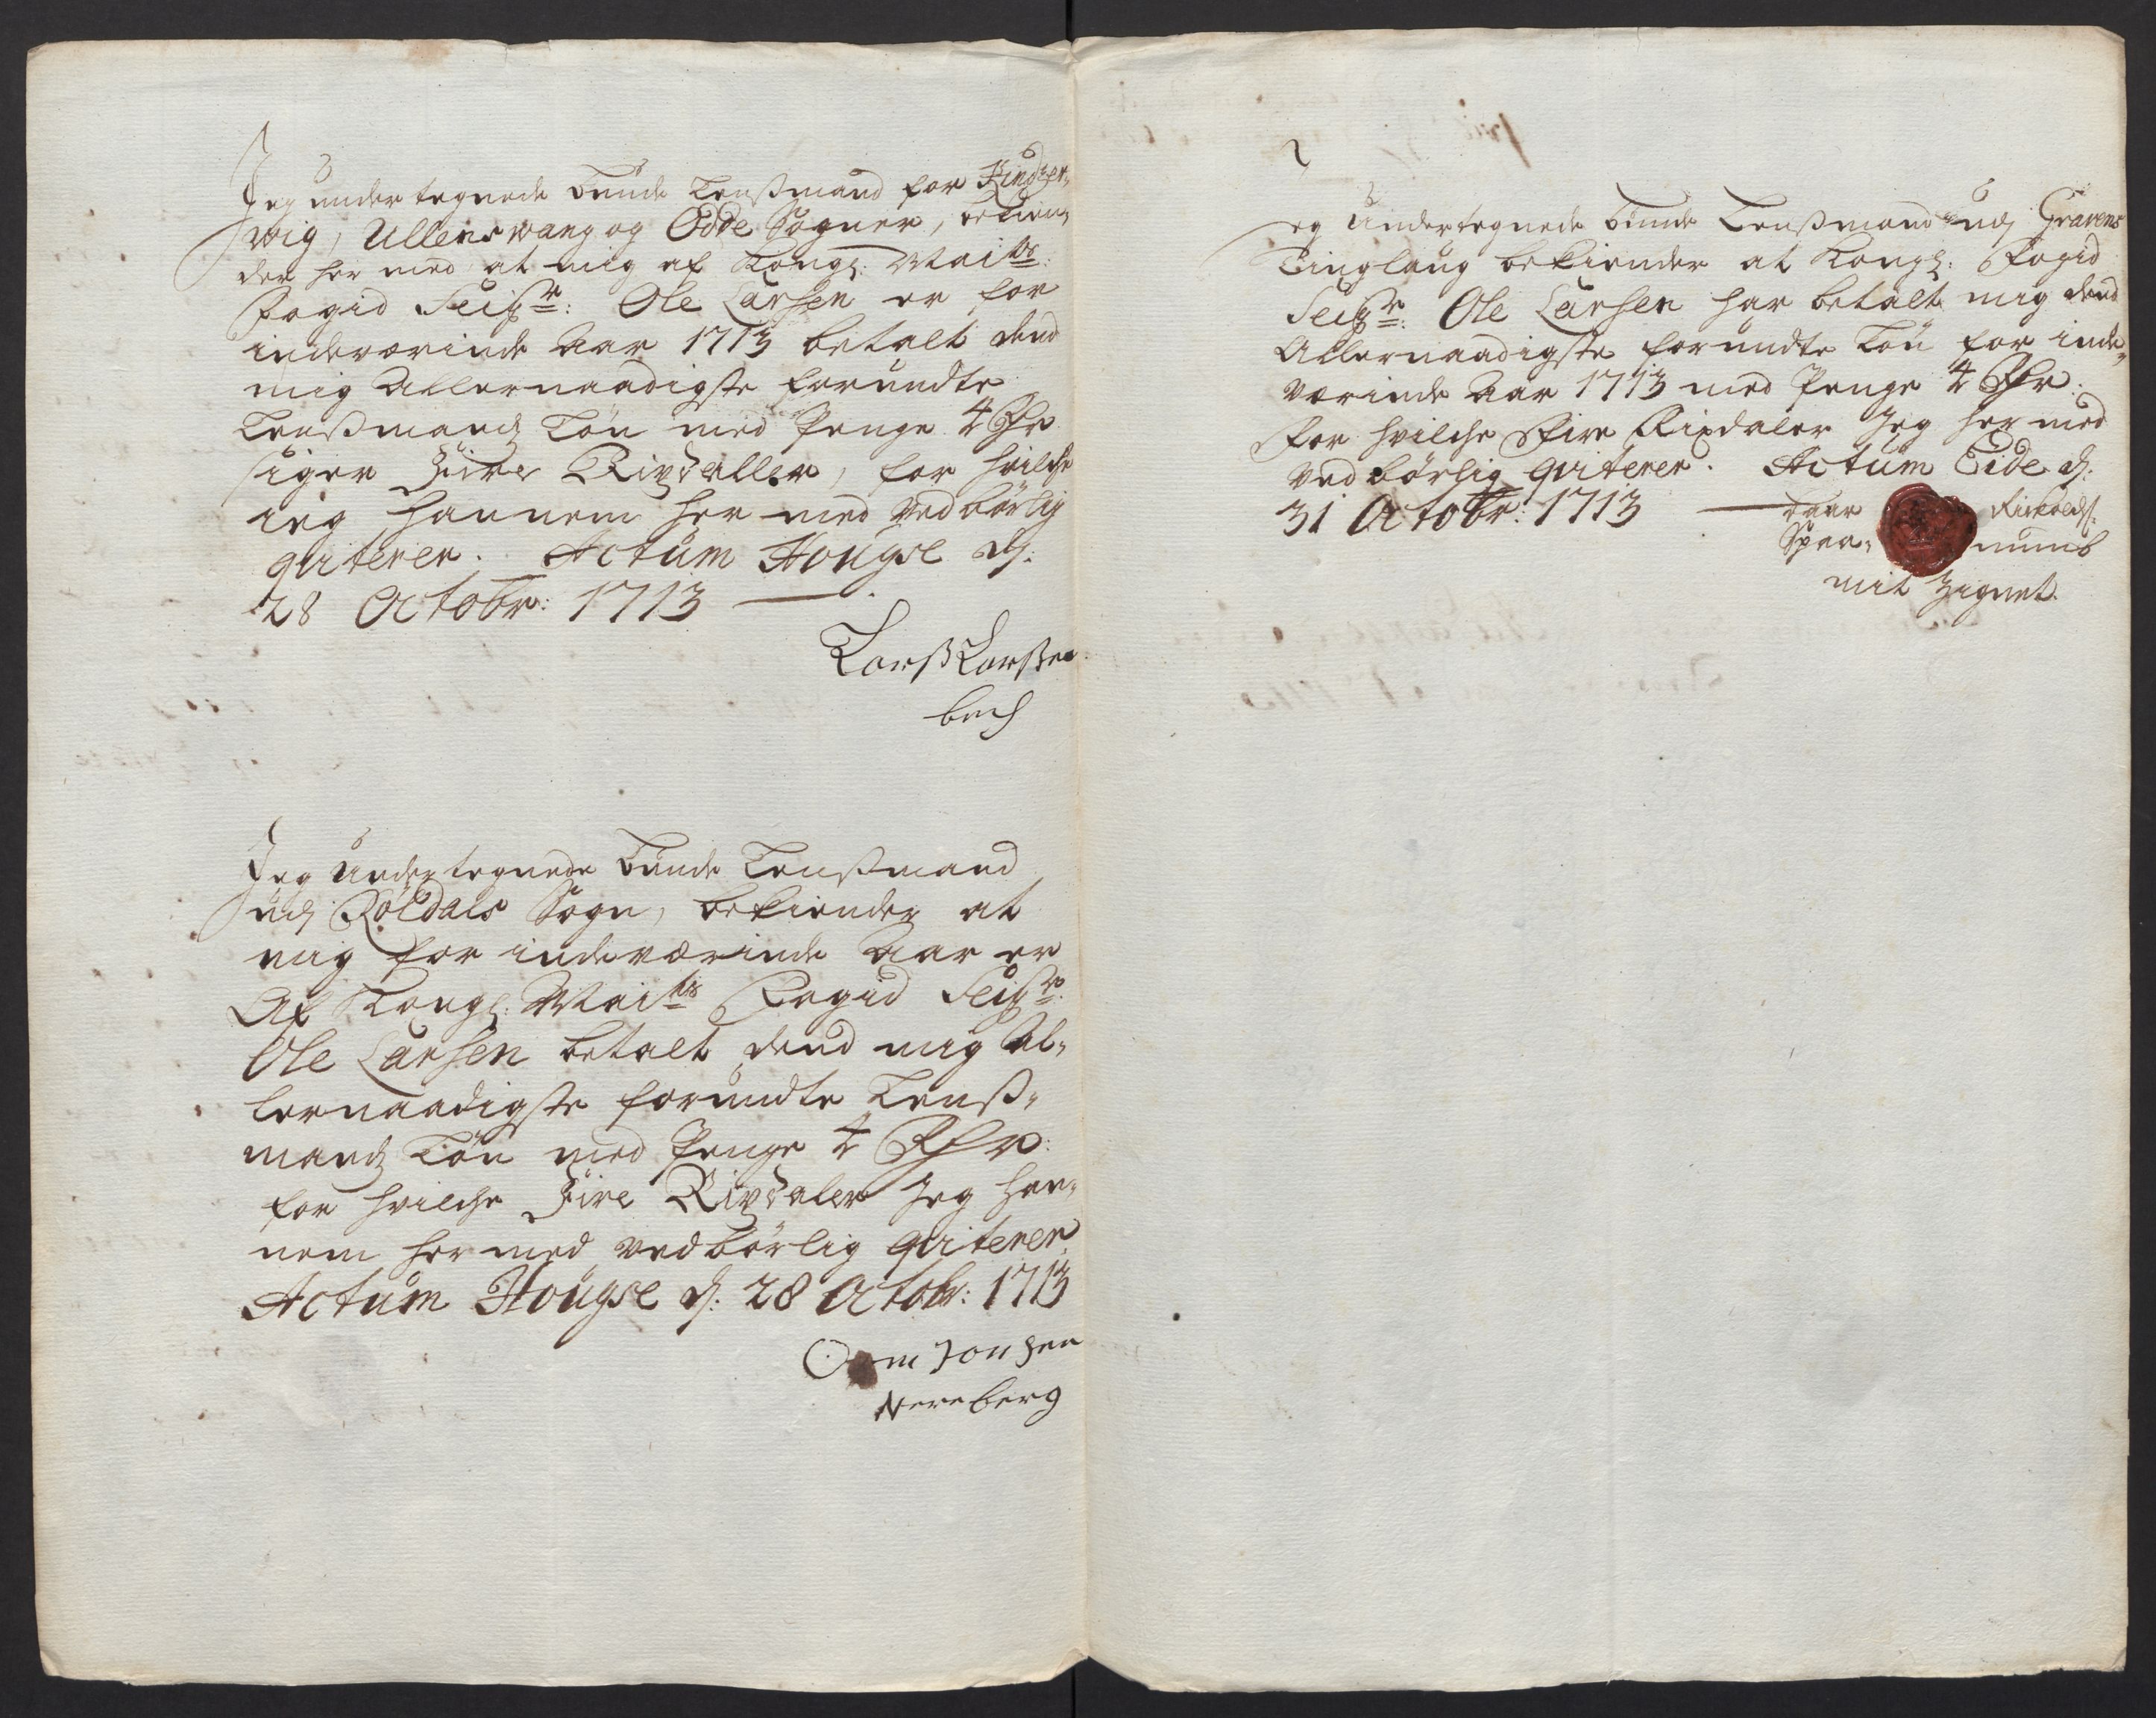 Jeg undertegnede bunde Lensßmand for Kindzer,,
wig, Ullenswang og Odde Sogner, bekien,,
der her med at mig af Kongl: Maits:
Fogid Seigr: Ole Larsen er for
indeværinde Aar 1713 betalt dend
mig Allernaadigste forundte
Lensßmands Løn med Penge 4 Rdr
siger Fire Rixdaller, for hvilche
ieg hannem her med vedbørlig
qviterer. Actum Hougse d:
28 Octobr: 1713
Larß Larßen
Jeg Undertegnede bunde Lensßmand
udj Røldals Sogn, bekiender at
mig for indeværinde Aar er
Af Kongl: Maits Fogid Seigr:
Ole Larsen betalt dend mig Al,,
lernaadigste forundte Lensß,,
mands Løn med Penge 4 Rdr:
for hvilche Fire Rixdaler Jeg han,,
nem her med vedbørlig qviterer
Actum Hougse d: 28 Octobr: 1713
Jonsen
Nereberg
Jeg Undertegnede bunde Lensßmand udj Gravens
Tinglaug bekiender at Kongl: Fogid
Seigr: Ole Larsen har betalt mig dend
Allernaadigste forundte Løn for inde,,
værinde Aar 1713 med Penge 4 Rdr:
for hvilche Fire Rixdaler Jeg her med
vedbørlig qviterer. Actum Eide d:
31 Octobr: 1713
mit Zignet.